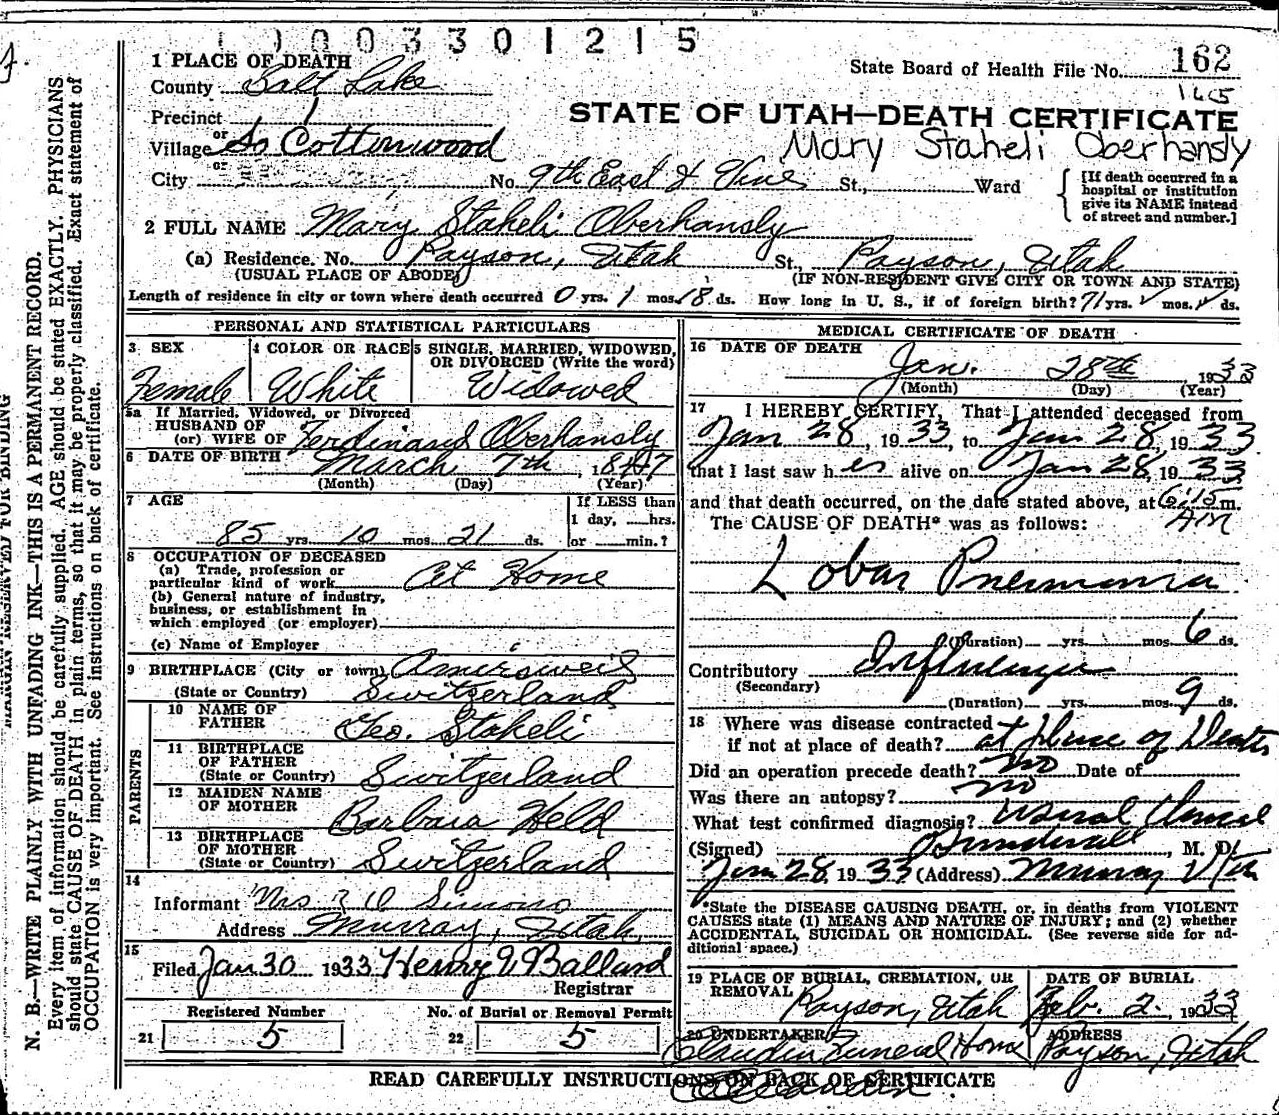 0 0 3 3 0 1 2 1 5
1 PLACE OF DEATH
County Salt Lake
State Board of Health File No. 162
165
Precinct 1
STATE OF UTAH—DEATH CERTIFICATE
or
Village So Cottonwood
Mary Staheli Oberhansly
or
City No. 9th East & Vine St., Ward
[If death occurred in a hospital or institution give its NAME instead of street and number.]
2 FULL NAME Mary Staheli Oberhansly
(a) Residence. No. Payson, Utah St., Payson, Utah
(USUAL PLACE OF ABODE) (IF NON-RESIDENT GIVE CITY OR TOWN AND STATE)
Length of residence in city or town where death occurred 0 yrs. 1 mos. 18 ds. How long in U. S., if of foreign birth? 71 yrs. mos. ds.
PERSONAL AND STATISTICAL PARTICULARS
3 SEX
Female
4 COLOR OR RACE
White
5 SINGLE, MARRIED, WIDOWED, OR DIVORCED (Write the word)
Widowed
5a If Married, Widowed, or Divorced
HUSBAND OF
(or) WIFE OF Ferdinand Oberhansly
6 DATE OF BIRTH March 7th, 1847
(Month) (Day) (Year)
7 AGE
85 yrs 10 mos. 21 ds.
If LESS than
1 day, hrs.
or min.?
8 OCCUPATION OF DECEASED
(a) Trade, profession or
particular kind of work At Home
(b) General nature of industry,
business, or establishment in
which employed (or employer)
(c) Name of Employer
9 BIRTHPLACE (City or town) Amersweil
(State or Country) Switzerland
PARENTS
10 NAME OF
FATHER Geo. Staheli
11 BIRTHPLACE
OF FATHER
(State or Country) Switzerland
12 MAIDEN NAME
OF MOTHER Barbara Held
13 BIRTHPLACE
OF MOTHER
(State or Country) Switzerland
14
Informant Mrs Simons
Address Murray, Utah
15
Filed Jan 30 1933 Henry W Ballard
Registrar
Registered Number
21 5
No. of Burial or Removal Permit
22 5
MEDICAL CERTIFICATE OF DEATH
16 DATE OF DEATH
Jan. 28th 1933
(Month) (Day) (Year)
17 I HEREBY CERTIFY, That I attended deceased from
Jan 28, 1933, to Jan 28, 1933
that I last saw her alive on Jan 28, 1933
and that death occurred, on the date stated above, at 6:15 m.
AM
The CAUSE OF DEATH* was as follows:
Lobar Pneumonia
(Duration) yrs. mos. 6 ds.
Contributory Influenza
(Secondary)
(Duration) yrs. mos. 9 ds.
18 Where was disease contracted
if not at place of death? at place of Death
Did an operation precede death? no Date of
Was there an autopsy? no
What test confirmed diagnosis? usual clinical
(Signed) , M. D.
Jan 28, 1933 (Address) Murray Utah
*State the DISEASE CAUSING DEATH, or, in deaths from VIOLENT
CAUSES state (1) MEANS AND NATURE OF INJURY; and (2) whether
ACCIDENTAL, SUICIDAL OR HOMICIDAL. (See reverse side for ad-
ditional space.)
19 PLACE OF BURIAL, CREMATION, OR
REMOVAL Payson, Utah
DATE OF BURIAL
Feb. 2, 1933
20 UNDERTAKER
Claudin Funeral Home
ADDRESS
Payson, Utah
READ CAREFULLY INSTRUCTIONS ON BACK OF CERTIFICATE
MARGIN RESERVED FOR BINDING
N. B.—WRITE PLAINLY WITH UNFADING INK—THIS IS A PERMANENT RECORD.
Every item of information should be carefully supplied. AGE should be stated EXACTLY. PHYSICIANS
should state CAUSE OF DEATH in plain terms, so that it may be properly classified. Exact statement of
OCCUPATION is very important. See instructions on back of certificate.